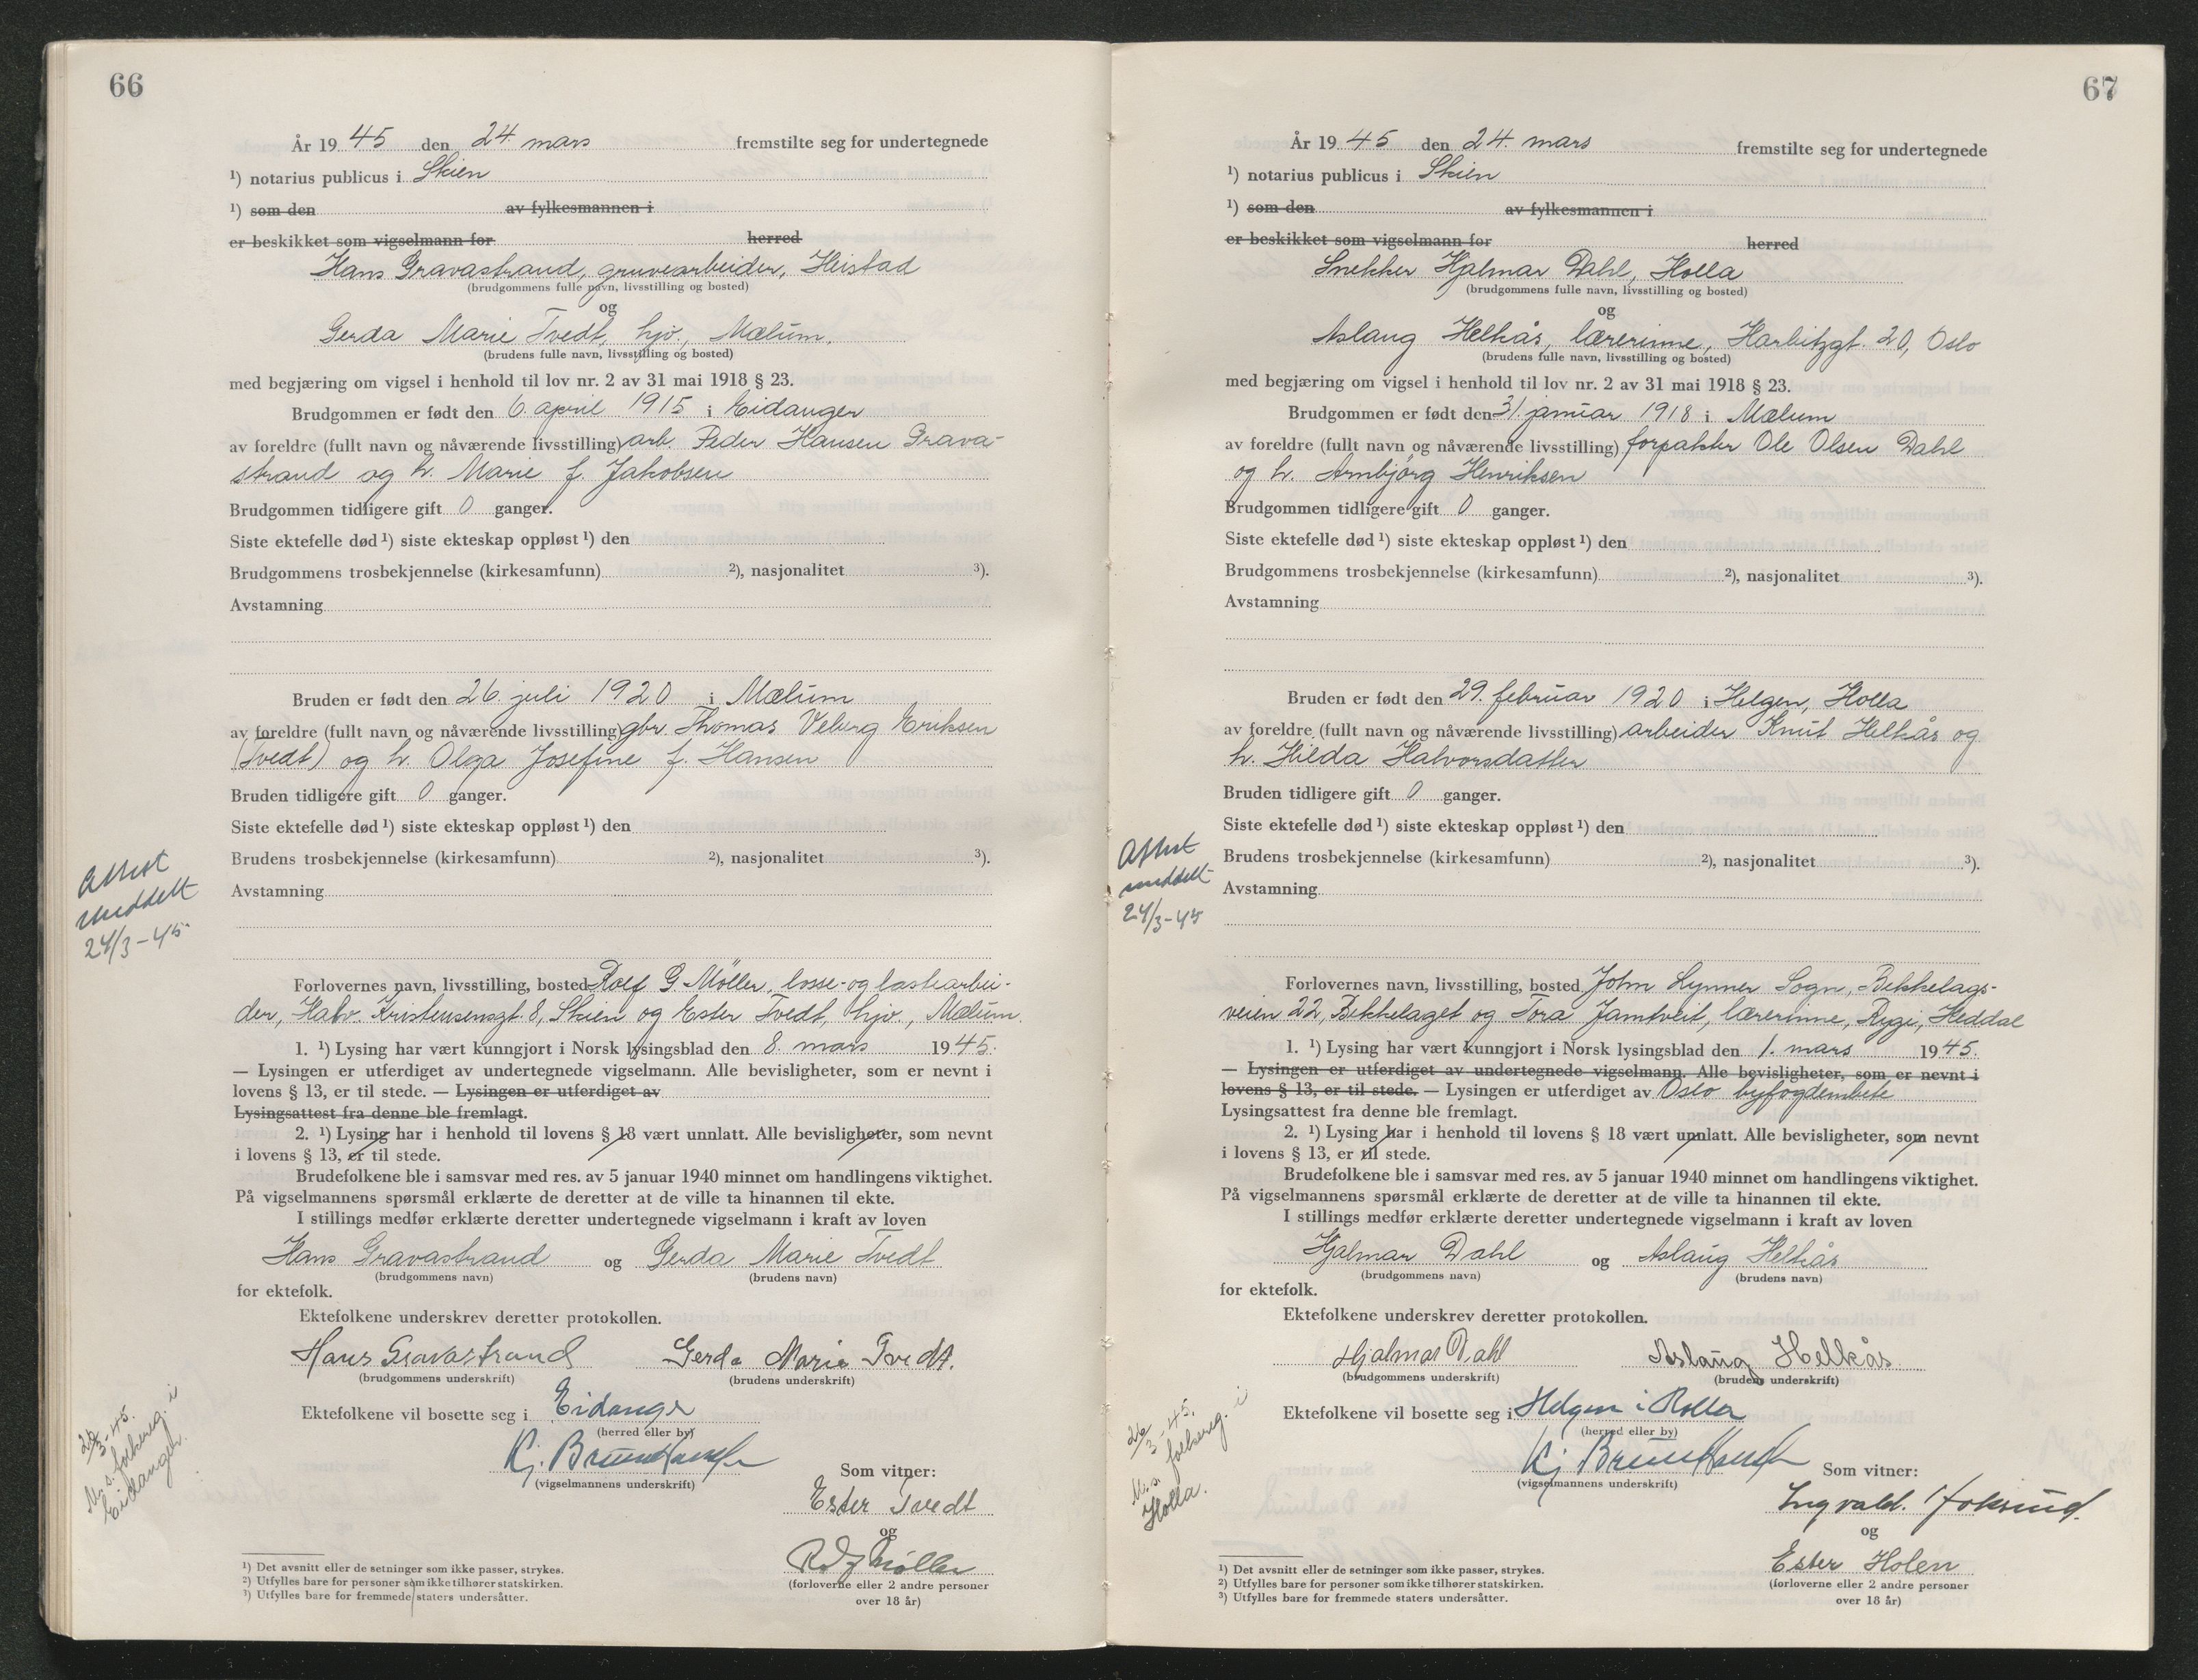 66
År 1945 den 24. mars fremstilte seg for undertegnede
¹) notarius publicus i Skien
¹) som den av fylkesmannen i
er beskikket som vigselmann for herred
Hans Gravastrand, gruvearbeider, Heistad
(brudgommens fulle navn, livsstilling og bosted)
og
Gerda Marie Tvedt, hjv., Mælum.
(brudens fulle navn, livsstilling og bosted)
med begjæring om vigsel i henhold til lov nr. 2 av 31 mai 1918 § 23.
Brudgommen er født den 6. april 1915 i Eidanger
av foreldre (fullt navn og nåværende livsstilling) arb. Peder Hansen Grava-
strand og h. Marie f. Jakobsen
Brudgommen tidligere gift 0 ganger.
Siste ektefelle død ¹) siste ekteskap oppløst ¹) den
Brudgommens trosbekjennelse (kirkesamfunn) ²), nasjonalitet ³).
Avstamning
Bruden er født den 26. juli 1920 i Mælum
av foreldre (fullt navn og nåværende livsstilling) gbr. Thomas Veberg Eriksen
(Tvedt) og h. Olga Josefine f. Hansen
Bruden tidligere gift 0 ganger.
Siste ektefelle død ¹) siste ekteskap oppløst ¹) den
Brudens trosbekjennelse (kirkesamfunn) ²), nasjonalitet ³).
Avstamning
Attest
meddelt
24/3-45
Forlovernes navn, livsstilling, bosted Rolf G. Møller, losse- og lastearbei-
der, Halv. Kristensensgt. 8, Skien og Ester Tvedt, hjv., Mælum.
1. ¹) Lysing har vært kunngjort i Norsk lysingsblad den 8. mars 1945.
— Lysingen er utferdiget av undertegnede vigselmann. Alle bevisligheter, som er nevnt i
lovens § 13, er til stede. — Lysingen er utferdiget av
Lysingsattest fra denne ble fremlagt.
2. ¹) Lysing har i henhold til lovens § 18 vært unnlatt. Alle bevisligheter, som nevnt
i lovens § 13, er til stede.
Brudefolkene ble i samsvar med res. av 5 januar 1940 minnet om handlingens viktighet.
På vigselmannens spørsmål erklærte de deretter at de ville ta hinannen til ekte.
I stillings medfør erklærte deretter undertegnede vigselmann i kraft av loven
Hans Gravastrand og Gerda Marie Tvedt
(brudgommens navn) (brudens navn)
for ektefolk.
Ektefolkene underskrev deretter protokollen.
Hans Gravastrand Gerda Marie Tvedt.
(brudgommens underskrift) (brudens underskrift)
Ektefolkene vil bosette seg i Eidanger
(herred eller by)
26/3-45.
M. s. folkereg. i
Eidanger.
(vigselmannens underskrift)
Som vitner:
Ester Tvedt
og
Rolf Møller
(forloverne eller 2 andre personer
over 18 år)
¹) Det avsnitt eller de setninger som ikke passer, strykes.
²) Utfylles bare for personer som ikke tilhører statskirken.
³) Utfylles bare for fremmede staters undersåtter.
67
År 1945 den 24. mars fremstilte seg for undertegnede
¹) notarius publicus i Skien
¹) som den av fylkesmannen i
er beskikket som vigselmann for herred
Snekker Hjalmar Dahl, Holla
(brudgommens fulle navn, livsstilling og bosted)
og
Aslaug Helkås, lærerinne, Harbitzgt. 20, Oslo
(brudens fulle navn, livsstilling og bosted)
med begjæring om vigsel i henhold til lov nr. 2 av 31 mai 1918 § 23.
Brudgommen er født den 31. januar 1918 i Mælum
av foreldre (fullt navn og nåværende livsstilling) forpakter Ole Olsen Dahl
og h. Arnbjørg Henriksen
Brudgommen tidligere gift 0 ganger.
Siste ektefelle død ¹) siste ekteskap oppløst ¹) den
Brudgommens trosbekjennelse (kirkesamfunn) ²), nasjonalitet ³).
Avstamning
Bruden er født den 29. februar 1920 i Helgen, Holla
av foreldre (fullt navn og nåværende livsstilling) arbeider Knut Helkås og
h. Hilda Halvorsdatter
Bruden tidligere gift 0 ganger.
Siste ektefelle død ¹) siste ekteskap oppløst ¹) den
Brudens trosbekjennelse (kirkesamfunn) ²), nasjonalitet ³).
Avstamning
Attest
meddelt
24/3-45
Forlovernes navn, livsstilling, bosted John Lynner Sogn, Bekkelags-
veien 22, Bekkelaget og Tora Jamtveit, lærerinne, Rygi, Heddal
1. ¹) Lysing har vært kunngjort i Norsk lysingsblad den 1. mars 1945.
— Lysingen er utferdiget av undertegnede vigselmann. Alle bevisligheter, som er nevnt i
lovens § 13, er til stede. — Lysingen er utferdiget av Oslo byfogdembete
Lysingsattest fra denne ble fremlagt.
2. ¹) Lysing har i henhold til lovens § 18 vært unnlatt. Alle bevisligheter, som nevnt
i lovens § 13, er til stede.
Brudefolkene ble i samsvar med res. av 5 januar 1940 minnet om handlingens viktighet.
På vigselmannens spørsmål erklærte de deretter at de ville ta hinannen til ekte.
I stillings medfør erklærte deretter undertegnede vigselmann i kraft av loven
Hjalmar Dahl og Aslaug Helkås
(brudgommens navn) (brudens navn)
for ektefolk.
Ektefolkene underskrev deretter protokollen.
Hjalmar Dahl Aslaug Helkås
(brudgommens underskrift) (brudens underskrift)
Ektefolkene vil bosette seg i Helgen i Holla
(herred eller by)
26/3-45.
M. s. folkereg. i
Holla.
(vigselmannens underskrift)
Som vitner:
Ingvald
og
Ester Holen
(forloverne eller 2 andre personer
over 18 år)
¹) Det avsnitt eller de setninger som ikke passer, strykes.
²) Utfylles bare for personer som ikke tilhører statskirken.
³) Utfylles bare for fremmede staters undersåtter.